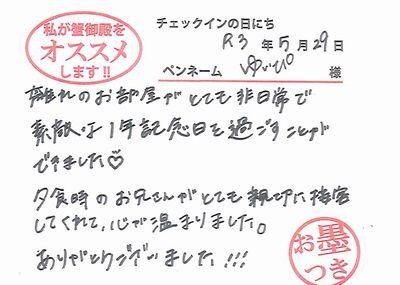 私が蟹御殿を
オススメ
します!!
チェックインの日にち
R3 年 5 月 29 日
ペンネーム ゆいぴ 様
離れのお部屋がとても非日常で
素敵な1年記念日を過ごすことが
できました♡
夕食時のお兄さんがとても親切に接客
してくれて、心が温まりました。
ありがとうございました!!!
お墨
つき